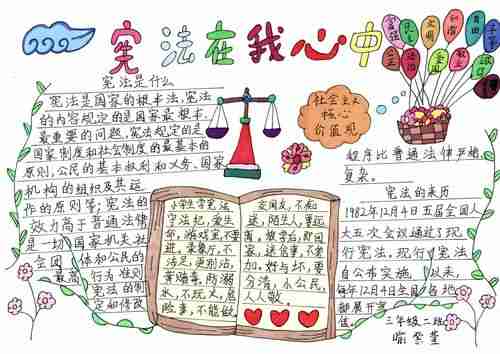 宪法在我心中
富强
民主
文明
和谐
自由
平等
公正
法治
爱国
敬业
社会主义
核心
价值观
宪法是什么
宪法是国家的根本法,宪法
的内容规定的是国家最根本、
最重要的问题,宪法规定的是
国家制度和社会制度的最基本的
原则,公民的基本权利和义务、国家
机构的组织及其运
作的原则等;宪法的
效力高于普通法律
是一切国家机关社
会团体和公民的
最高行为准则
宪法的制
定和修改
小学生学宪法,
守法纪,爱生
命,游戏室,不要
进,录像厅,不
沾足,更别沾,
黄赌毒,防溺
水,不玩火,危
险事,不能做。
交朋友,不痴
迷,陌生人,要远
离。放学后,即回
家,进信事,不参
加。好与坏,要
分清,小公民,
人人敬。
程序比普通法律严格、
复杂。
宪法的来历
1982年12月4日五届全国人
大五次会议通过了现
行宪法。现行宪法
自公布实施,以来,
每年12月4日全国各地
都展开宣
三年级二班
喻